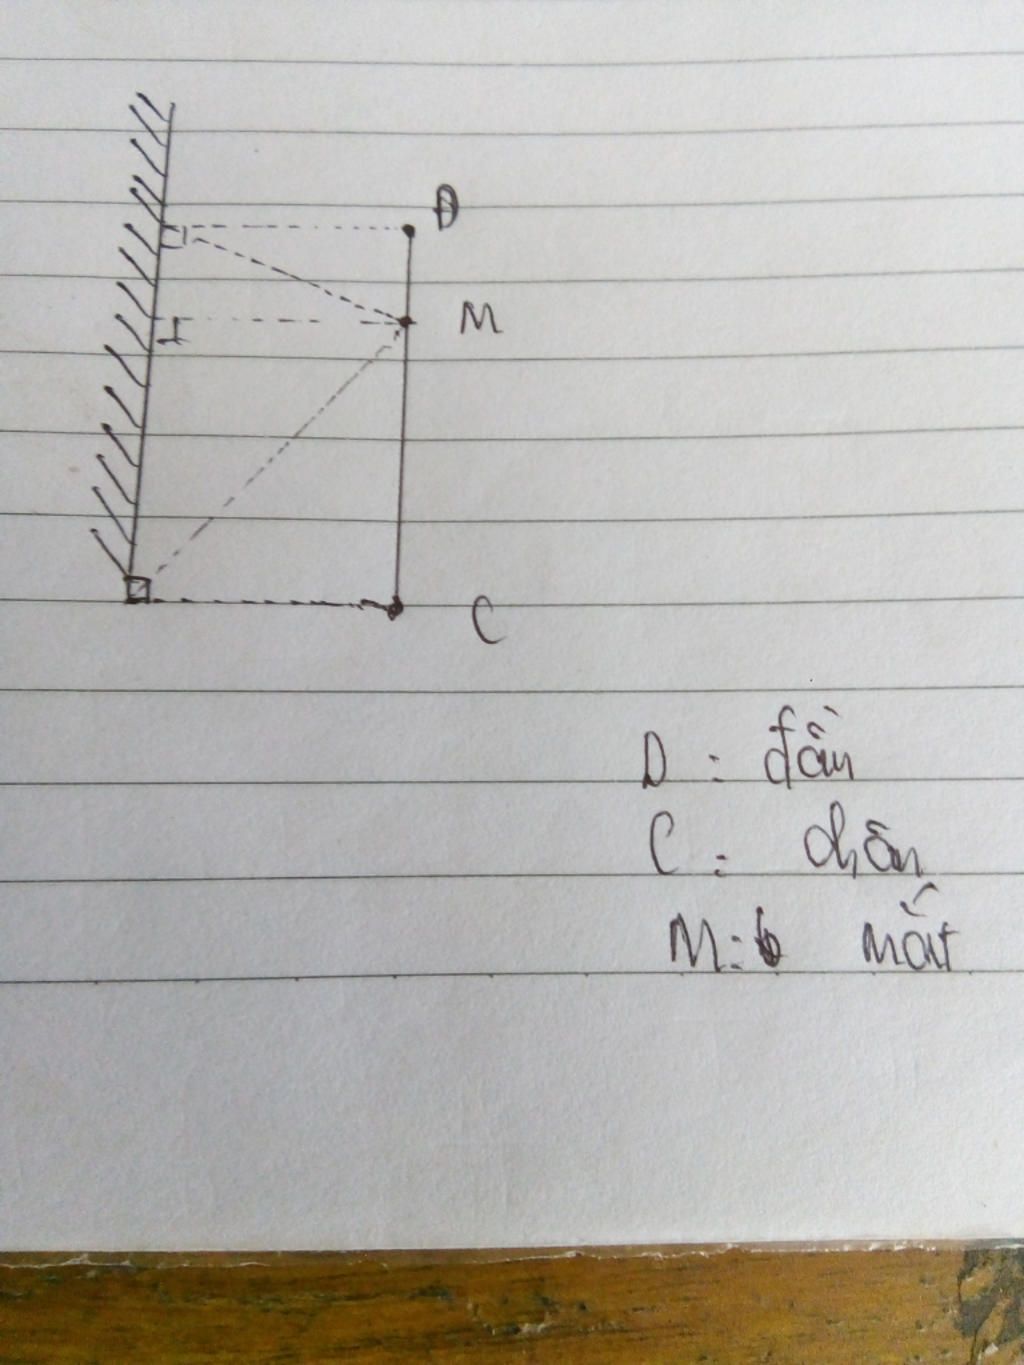 D
M
I
C
D : đầu
C : chân
M : mắt